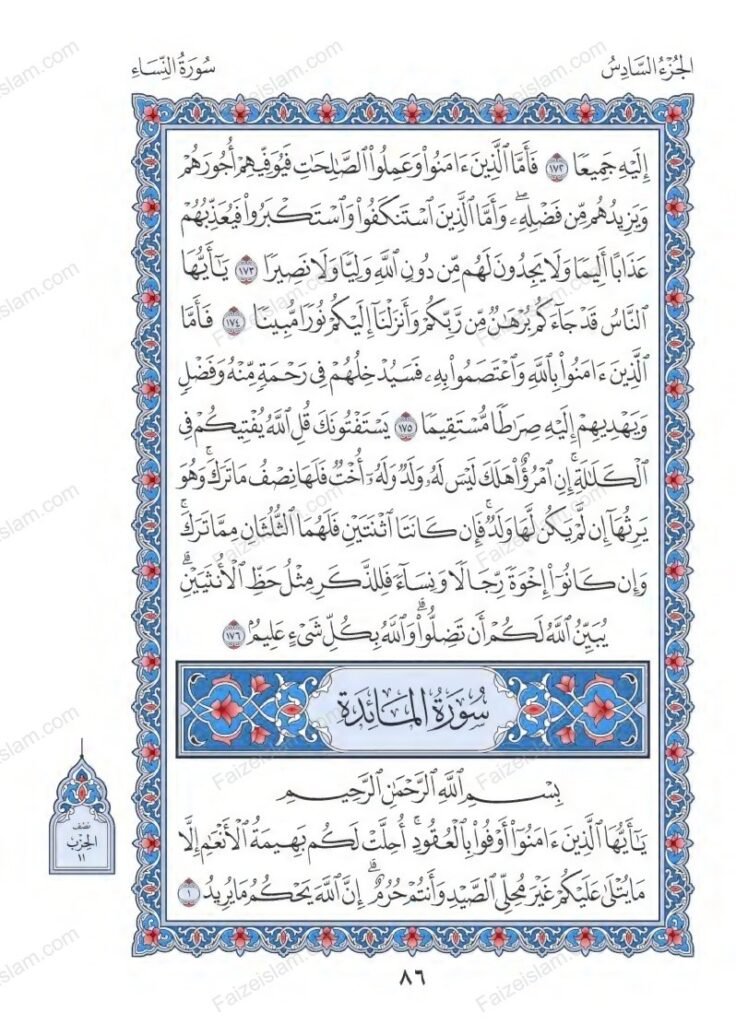 الجُزْءُ السَّادِسُ
سُورَةُ النِّسَاءِ
إِلَيْهِ جَمِيعًا ١٧٢ فَأَمَّا ٱلَّذِينَ ءَامَنُوا۟ وَعَمِلُوا۟ ٱلصَّـٰلِحَـٰتِ فَيُوَفِّيهِمْ أُجُورَهُمْ
وَيَزِيدُهُم مِّن فَضْلِهِۦۖ وَأَمَّا ٱلَّذِينَ ٱسْتَنكَفُوا۟ وَٱسْتَكْبَرُوا۟ فَيُعَذِّبُهُمْ
عَذَابًا أَلِيمًا وَلَا يَجِدُونَ لَهُم مِّن دُونِ ٱللَّهِ وَلِيًّا وَلَا نَصِيرًا ١٧٣ يَـٰٓأَيُّهَا
ٱلنَّاسُ قَدْ جَآءَكُم بُرْهَـٰنٌ مِّن رَّبِّكُمْ وَأَنزَلْنَآ إِلَيْكُمْ نُورًا مُّبِينًا ١٧٤ فَأَمَّا
ٱلَّذِينَ ءَامَنُوا۟ بِٱللَّهِ وَٱعْتَصَمُوا۟ بِهِۦ فَسَيُدْخِلُهُمْ فِى رَحْمَةٍ مِّنْهُ وَفَضْلٍ
وَيَهْدِيهِمْ إِلَيْهِ صِرَٰطًا مُّسْتَقِيمًا ١٧٥ يَسْتَفْتُونَكَ قُلِ ٱللَّهُ يُفْتِيكُمْ فِى
ٱلْكَلَـٰلَةِۚ إِنِ ٱمْرُؤٌا۟ هَلَكَ لَيْسَ لَهُۥ وَلَدٌ وَلَهُۥٓ أُخْتٌ فَلَهَا نِصْفُ مَا تَرَكَۚ وَهُوَ
يَرِثُهَآ إِن لَّمْ يَكُن لَّهَا وَلَدٌۚ فَإِن كَانَتَا ٱثْنَتَيْنِ فَلَهُمَا ٱلثُّلُثَانِ مِمَّا تَرَكَۚ
وَإِن كَانُوٓا۟ إِخْوَةً رِّجَالًا وَنِسَآءً فَلِلذَّكَرِ مِثْلُ حَظِّ ٱلْأُنثَيَيْنِۗ
يُبَيِّنُ ٱللَّهُ لَكُمْ أَن تَضِلُّوا۟ۗ وَٱللَّهُ بِكُلِّ شَىْءٍ عَلِيمٌۢ ١٧٦
سُورَةُ المَائِدَةِ
بِسْمِ ٱللَّهِ ٱلرَّحْمَـٰنِ ٱلرَّحِيمِ
يَـٰٓأَيُّهَا ٱلَّذِينَ ءَامَنُوٓا۟ أَوْفُوا۟ بِٱلْعُقُودِۚ أُحِلَّتْ لَكُم بَهِيمَةُ ٱلْأَنْعَـٰمِ إِلَّا
مَا يُتْلَىٰ عَلَيْكُمْ غَيْرَ مُحِلِّى ٱلصَّيْدِ وَأَنتُمْ حُرُمٌۗ إِنَّ ٱللَّهَ يَحْكُمُ مَا يُرِيدُ ١
نصف
الحزب
١١
٨٦
Faizeislam.com